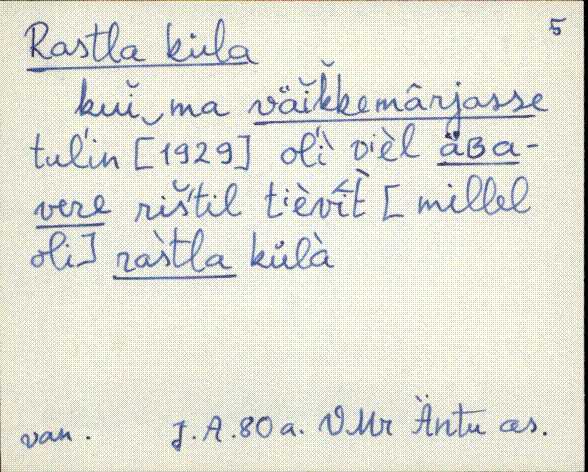 Rastla küla 5
kui ma väikkemârjasse
tuĺin [1929] oĺì vièl äBa-
vere rištil tièvì̆t̀ [ millel
oli] rastla külà
van. J.A. 80 a. VMr Äntu as.